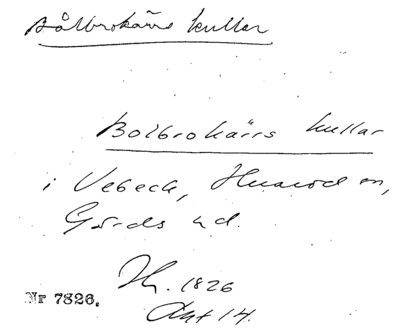 Bålbrokärrs kullar
Bolbrokärrs kullar
i Vebeck, Huarod sn,
Gärds hd.
Jh. 1826
Akt 14.
Nr 7826.